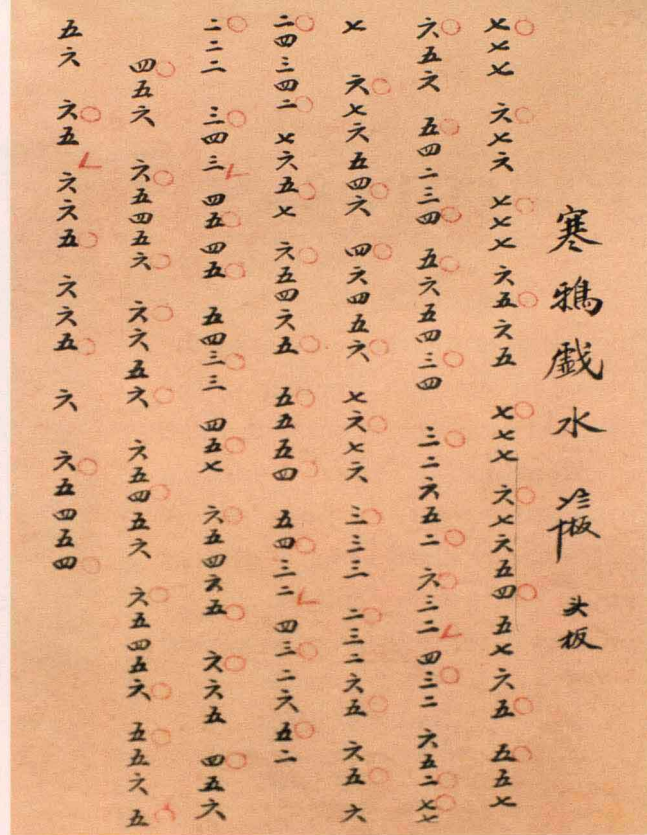 寒鸦戯水 头板
七七七 六七六 七七七 六五六五 七七七 六七六五四 五七六五 五五七
六五六 五四二三四 五六五四三四 三二六五二 六三二 四三二 六五二七七
七 六七六五四六 四六四五六 七六七六 三三三 二三二六五 六五六
二四三四二 七六五七 六五四六五 五五五四 五四三二 四三二六五二
二二二 三四三 四五四五 五四三三 四五七 六五四六五 六六五 四五六
四五六 六五四五六 六六五六 六五四五六 六五四五六 五五六五
五六 六五 六六五 六六五 六 六五四五四